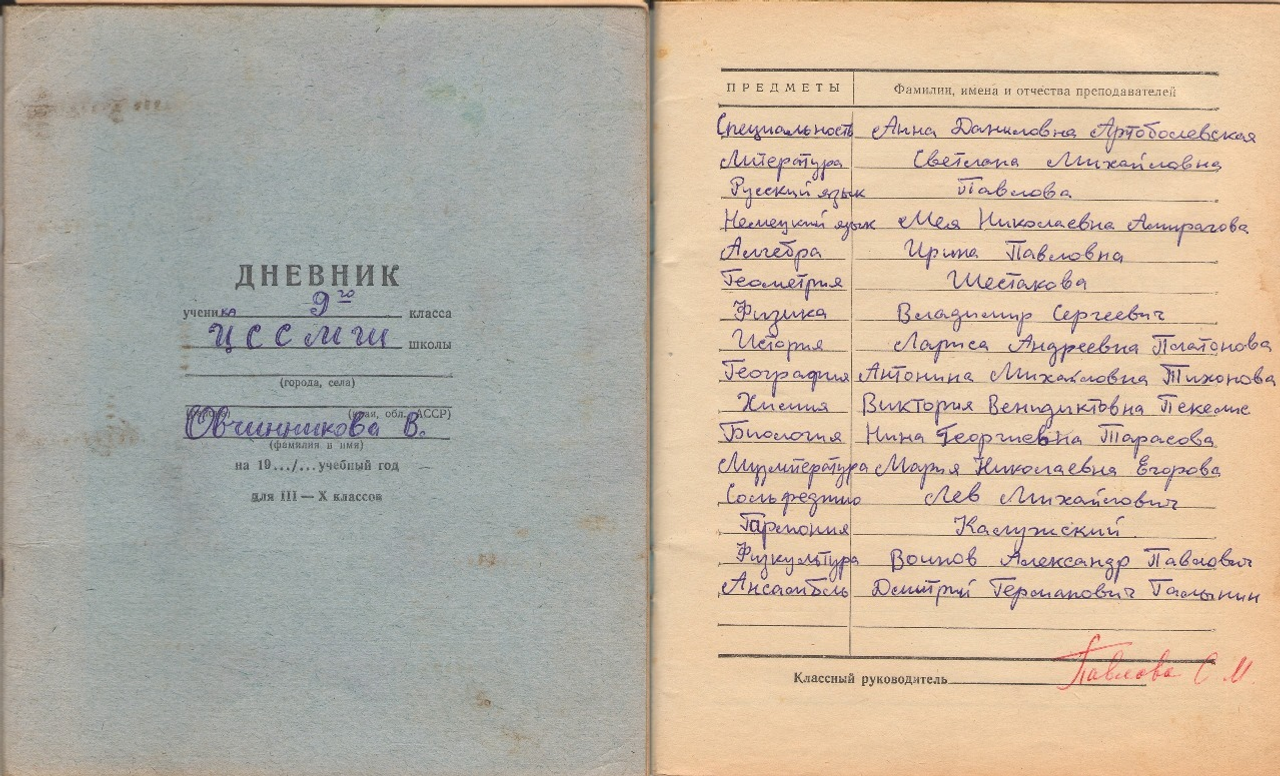 ДНЕВНИК
ученика 9го класса
ЦССМШ школы
(города, села)
(край, обл., АССР)
Овчинникова В.
(фамилия и имя)
на 19.../... учебный год
для III — X классов
ПРЕДМЕТЫ Фамилии, имена и отчества преподавателей
Специальность Анна Даниловна Артоболевская
Литература Светлана Михайловна
Русский язык Павлова
Немецкий язык Мея Николаевна Амирагова
Алгебра Ирина Павловна
Геометрия Шестакова
Физика Владимир Сергеевич
История Лариса Андреевна Платонова
География Антонина Михайловна Тихонова
Химия Виктория Венидиктовна Пекелис
Биология Нина Георгиевна Тарасова
Музлитература Мария Николаевна Егорова
Сольфеджио Лев Михайлович
Гармония Калужский
Физкультура Воинов Александр Павлович
Ансамбль Дмитрий Германович Галынин
Классный руководитель Павлова С М